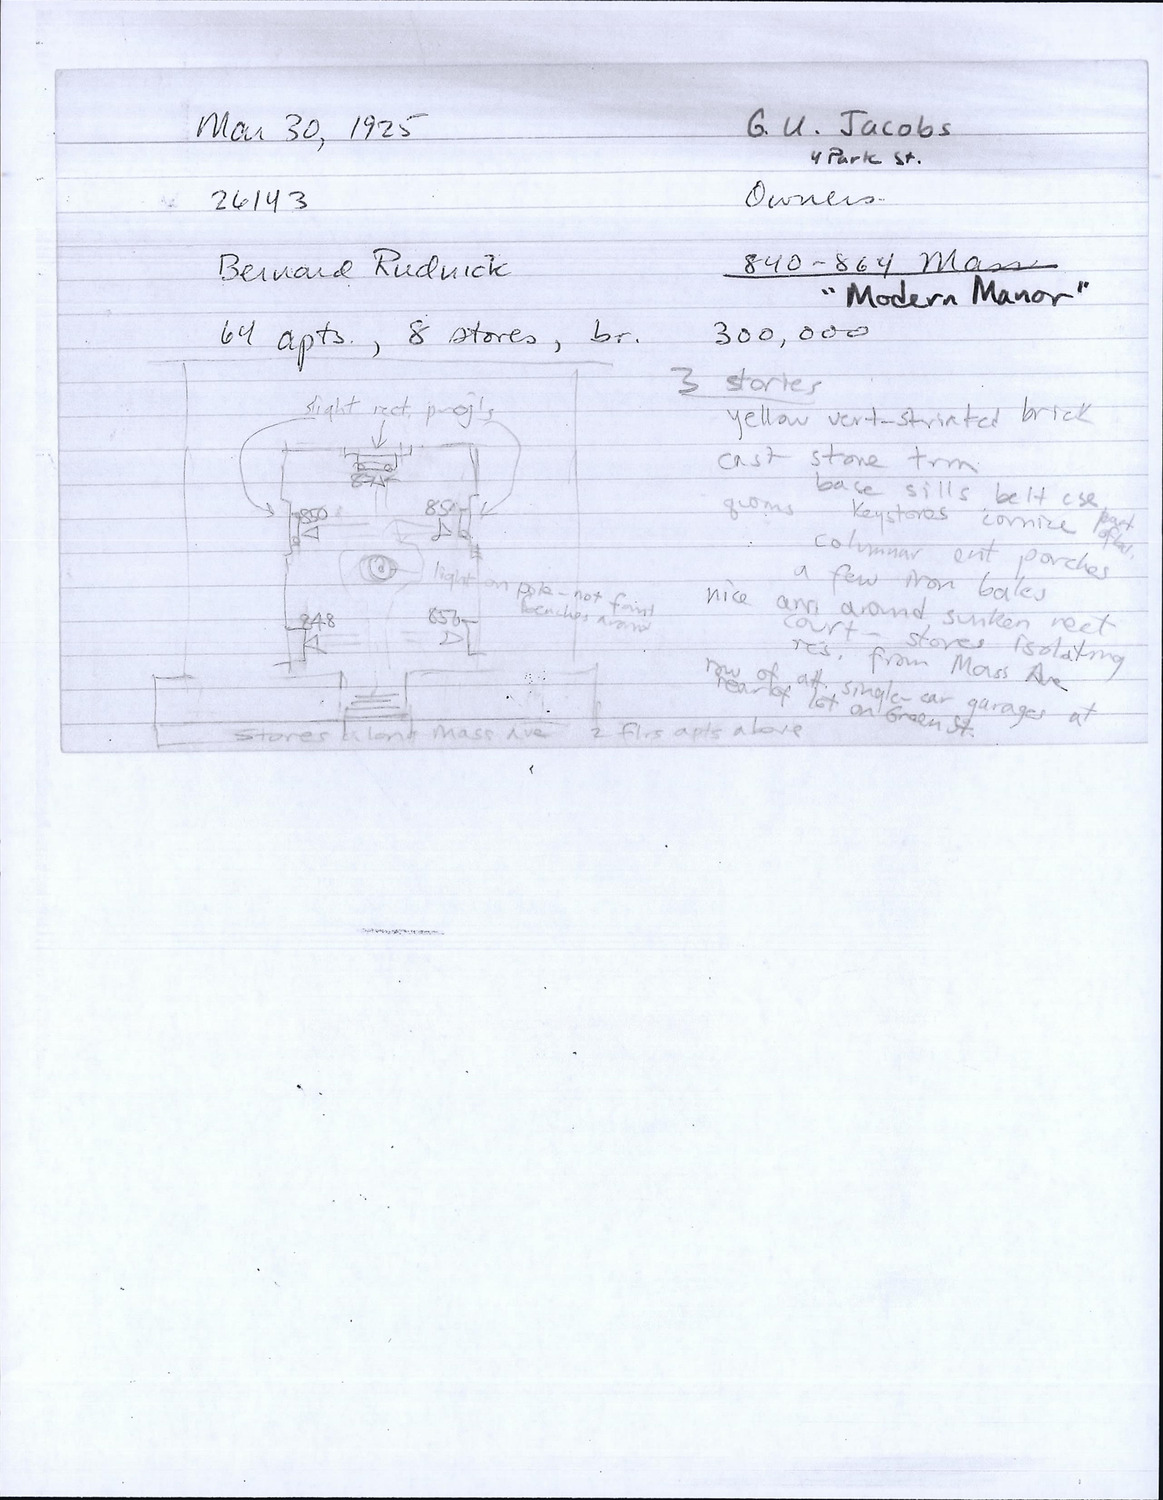 Mar 30, 1925
G. U. Jacobs
4 Park St.
26143
Owners
Bernard Rudnick
840-864 Mass
"Modern Manor"
64 apts., 8 stores, br.
300,000
3 stories
slight rect. proj's
yellow vert-striated brick
cast stone trim
base sills belt cse
quoins keystones cornice
columnar ent porches
a few iron balcs
850
848
856
light on pole - not fount
benches around
nice arr. around sunken rect
court - stores isolating
res. from Mass Ave
row of att. single-car garages at
rear of lot on Green St.
Stores along Mass Ave
2 flrs apts above